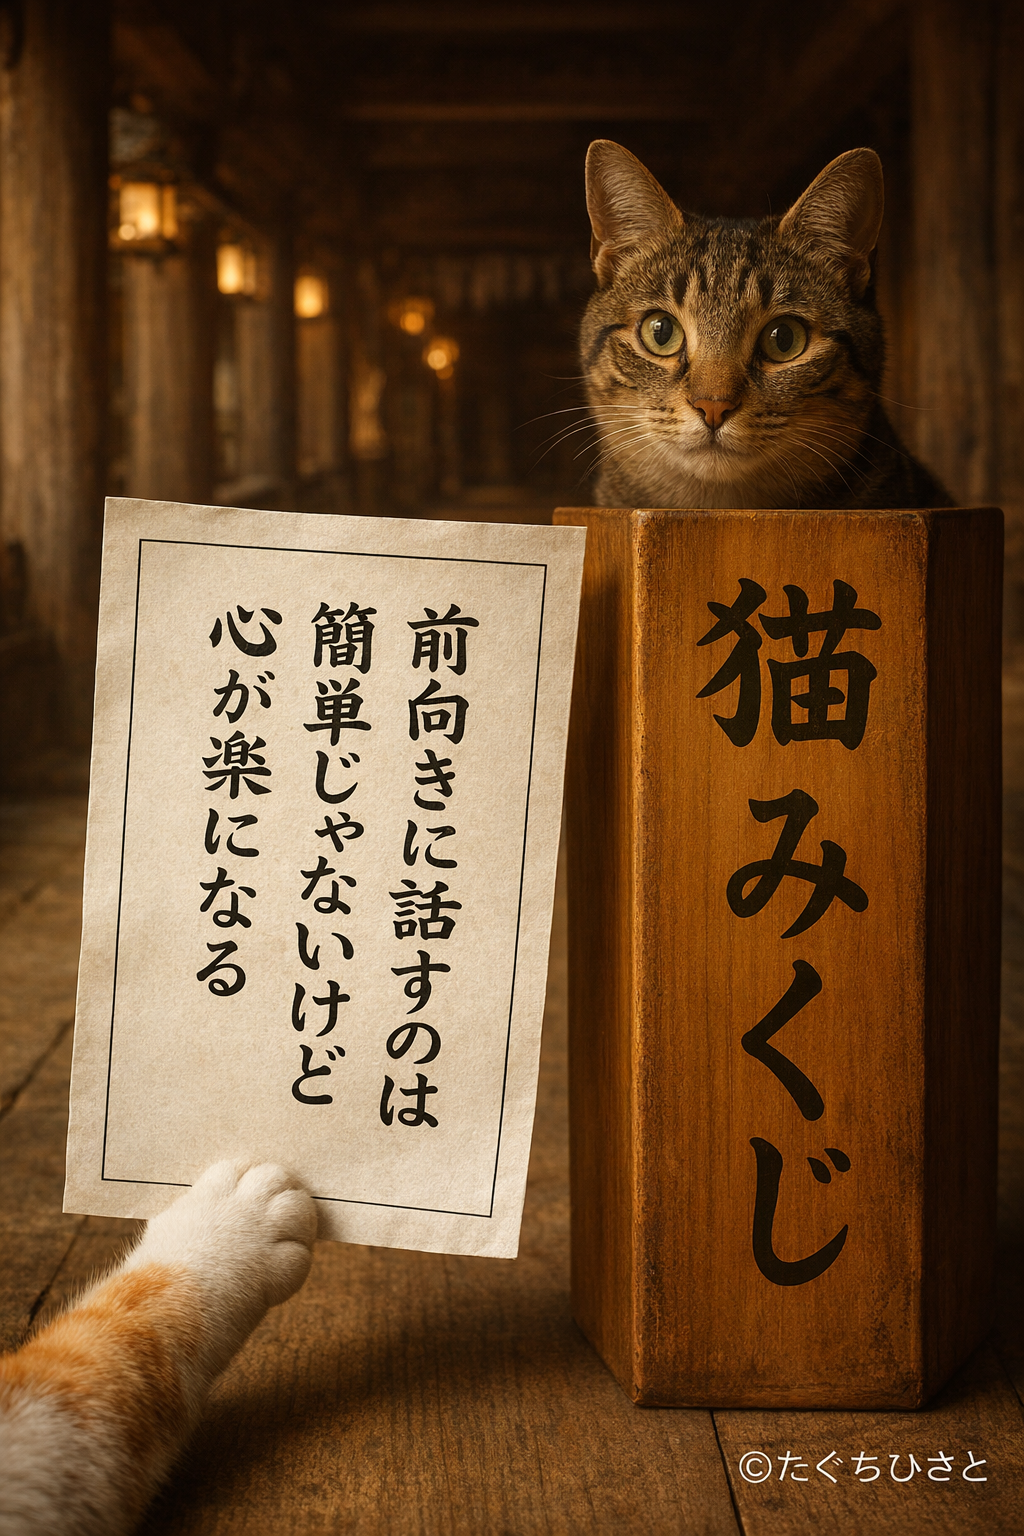 前向きに話すのは
簡単じゃないけど
心が楽になる
猫みくじ
©たぐちひさと